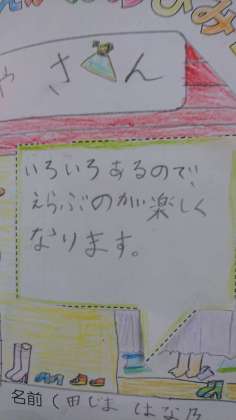 やさん
いろいろあるので、
えらぶのが楽しく
なります。
名前(田じま はな乃